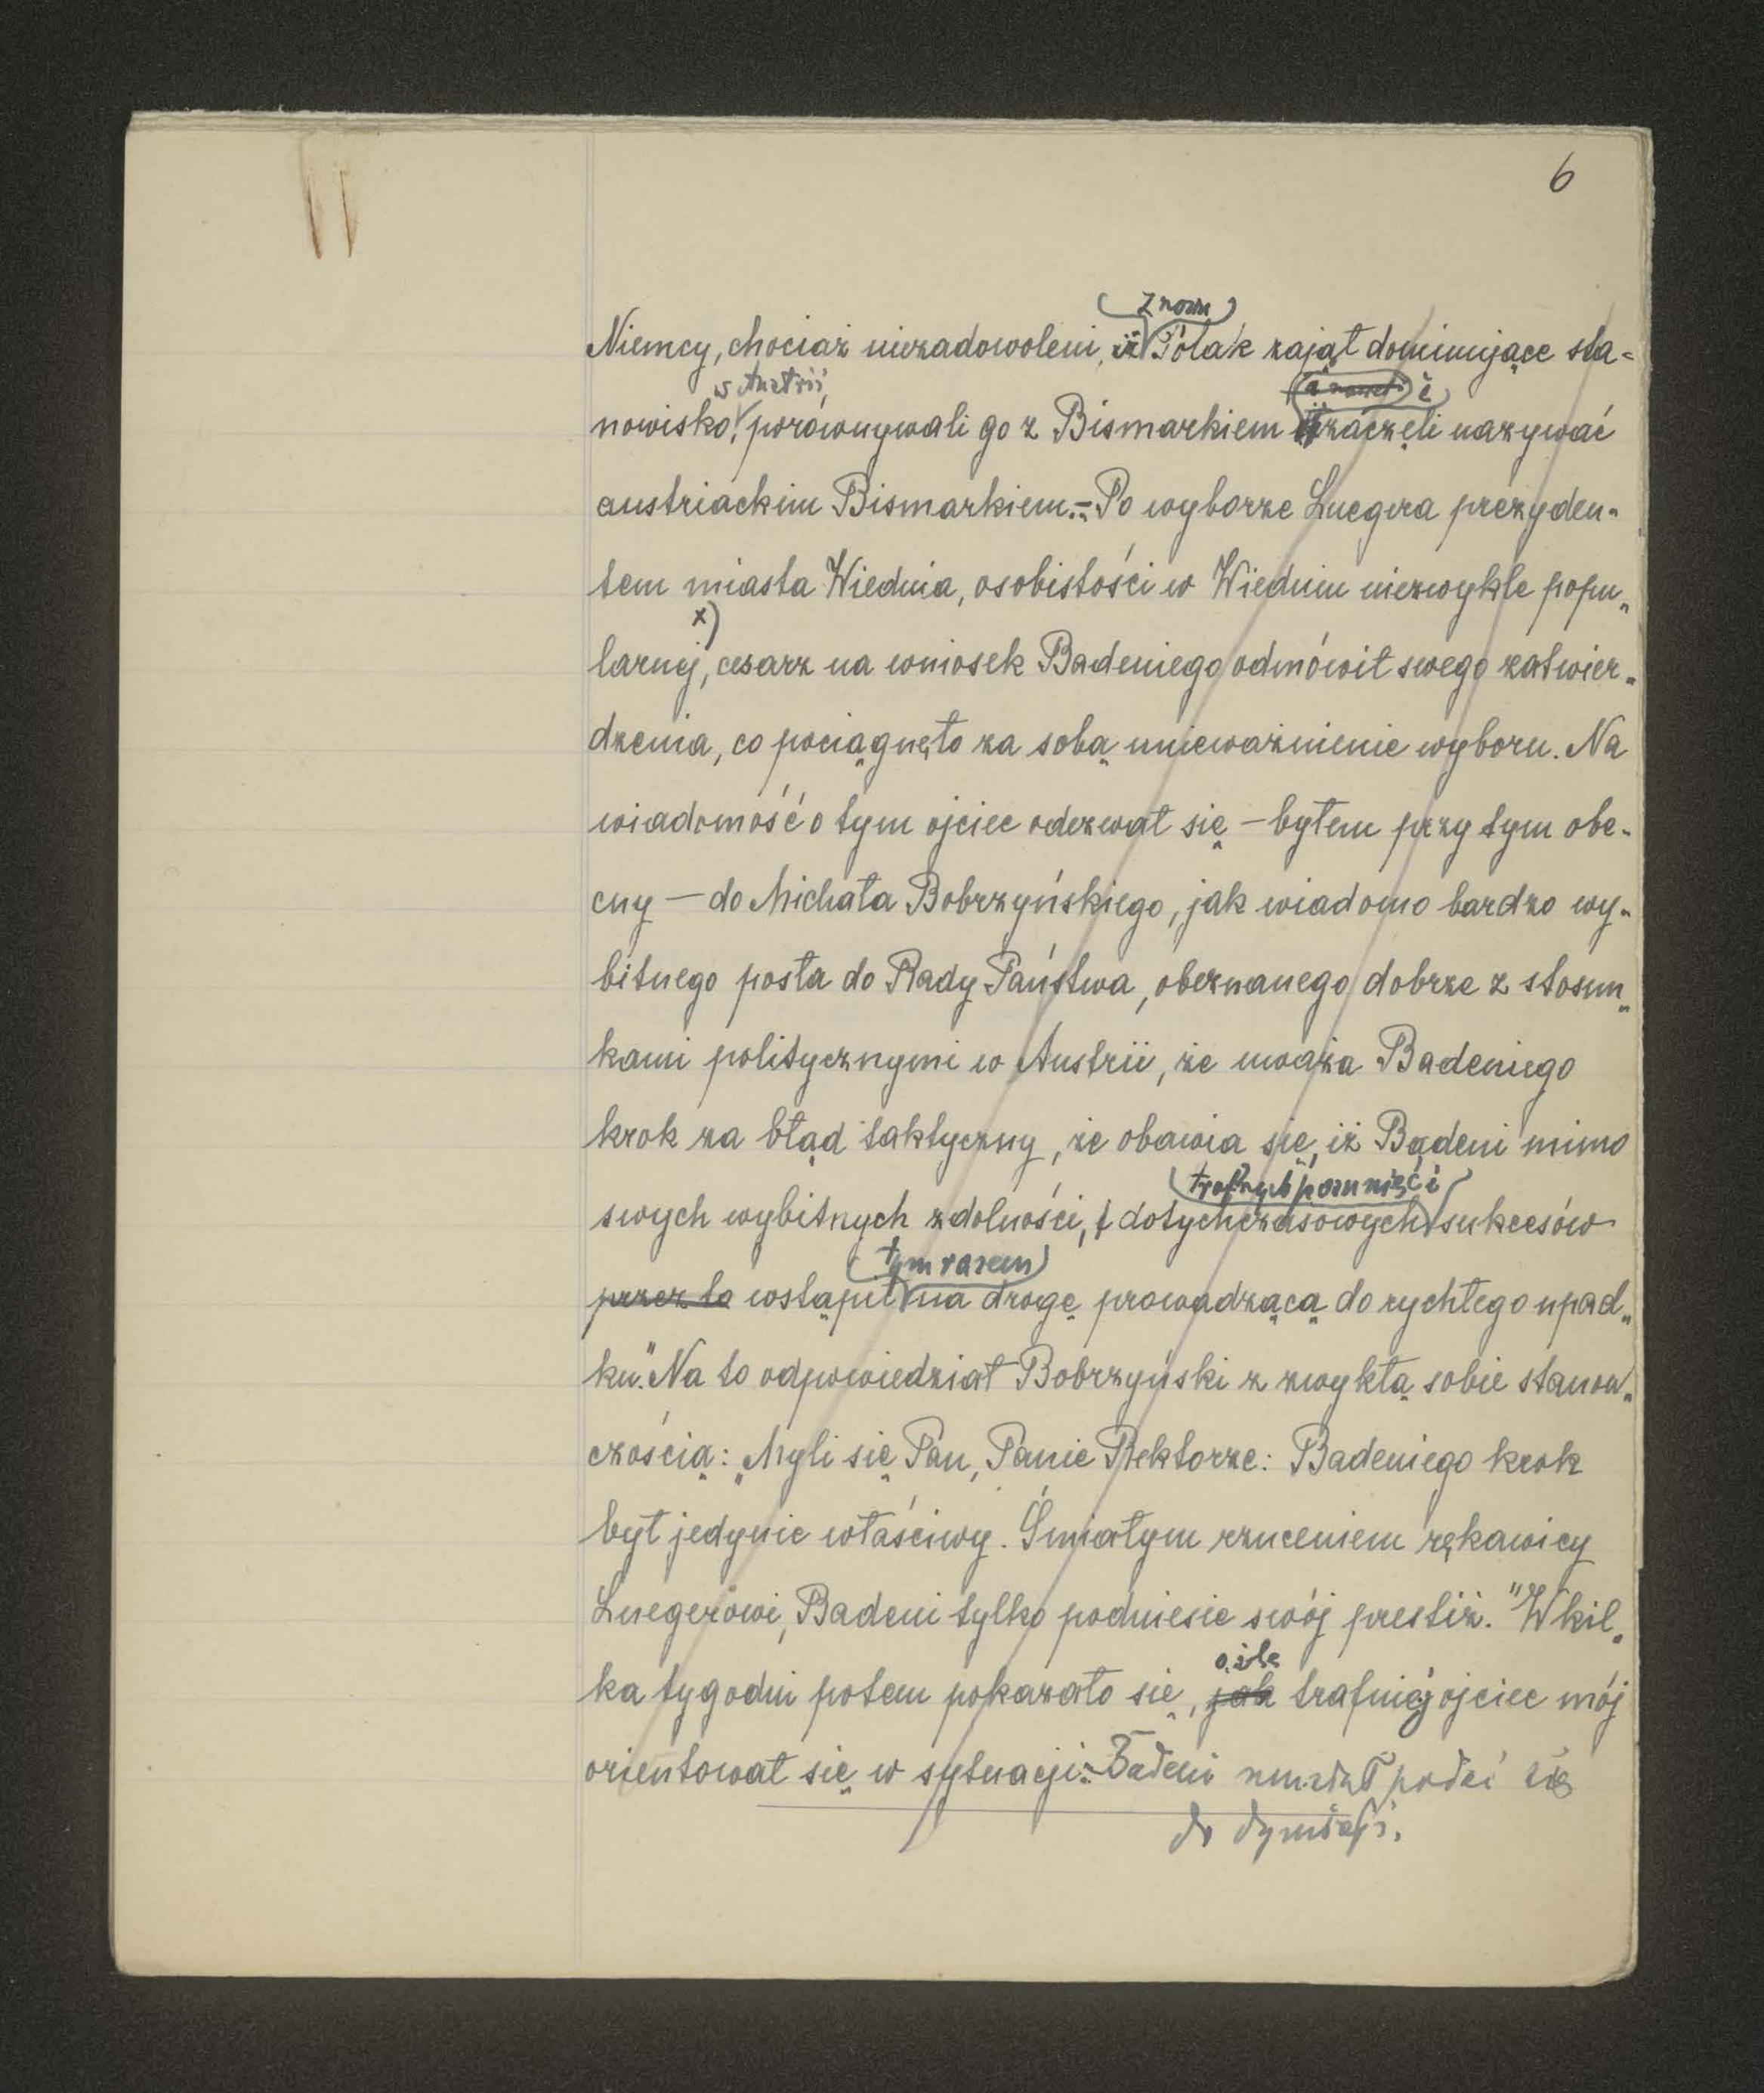 6
znowu
Niemcy, chociaż niezadowoleni, iż Polak zajął dominujące sta=
w Austrii,
a nawet i
nowisko, porównywali go z Bismarkiem i zaczęli nazywać
austriackim Bismarkiem.- Po wyborze Luegera prezyden-
tem miasta Wiednia, osobistości w Wiedniu niezwykle popu-
x)
larnej, cesarz na wniosek Badeniego odmówił swego zatwier-
dzenia, co pociągnęło za sobą unieważnienie wyboru. Na
wiadomość o tym ojciec odezwał się – byłem przy tym obe-
cny – do Michała Bobrzyńskiego, jak wiadomo bardzo wy-
bitnego posła do Rady Państwa, obeznanego dobrze z stosun-
kami politycznymi w Austrii, że uważa Badeniego
krok za błąd taktyczny, że obawia się, iż Badeni mimo
trafnych posunięć i
swych wybitnych zdolności, i dotychczasowych sukcesów
tym razem
przez to wstąpił na drogę prowadzącą do rychłego upad-
ku." Na to odpowiedział Bobrzyński z zwykłą sobie stanow-
czością: „Myli się Pan, Panie Rektorze: Badeniego krok
był jedynie właściwy. Śmiałym rzuceniem rękawicy
Luegerowi, Badeni tylko podniesie swój prestiż." W kil-
o ile
ka tygodni potem pokazało się, jak trafniej ojciec mój
orientował się w sytuacji:- Badeni musiał podać się
do dymisji.